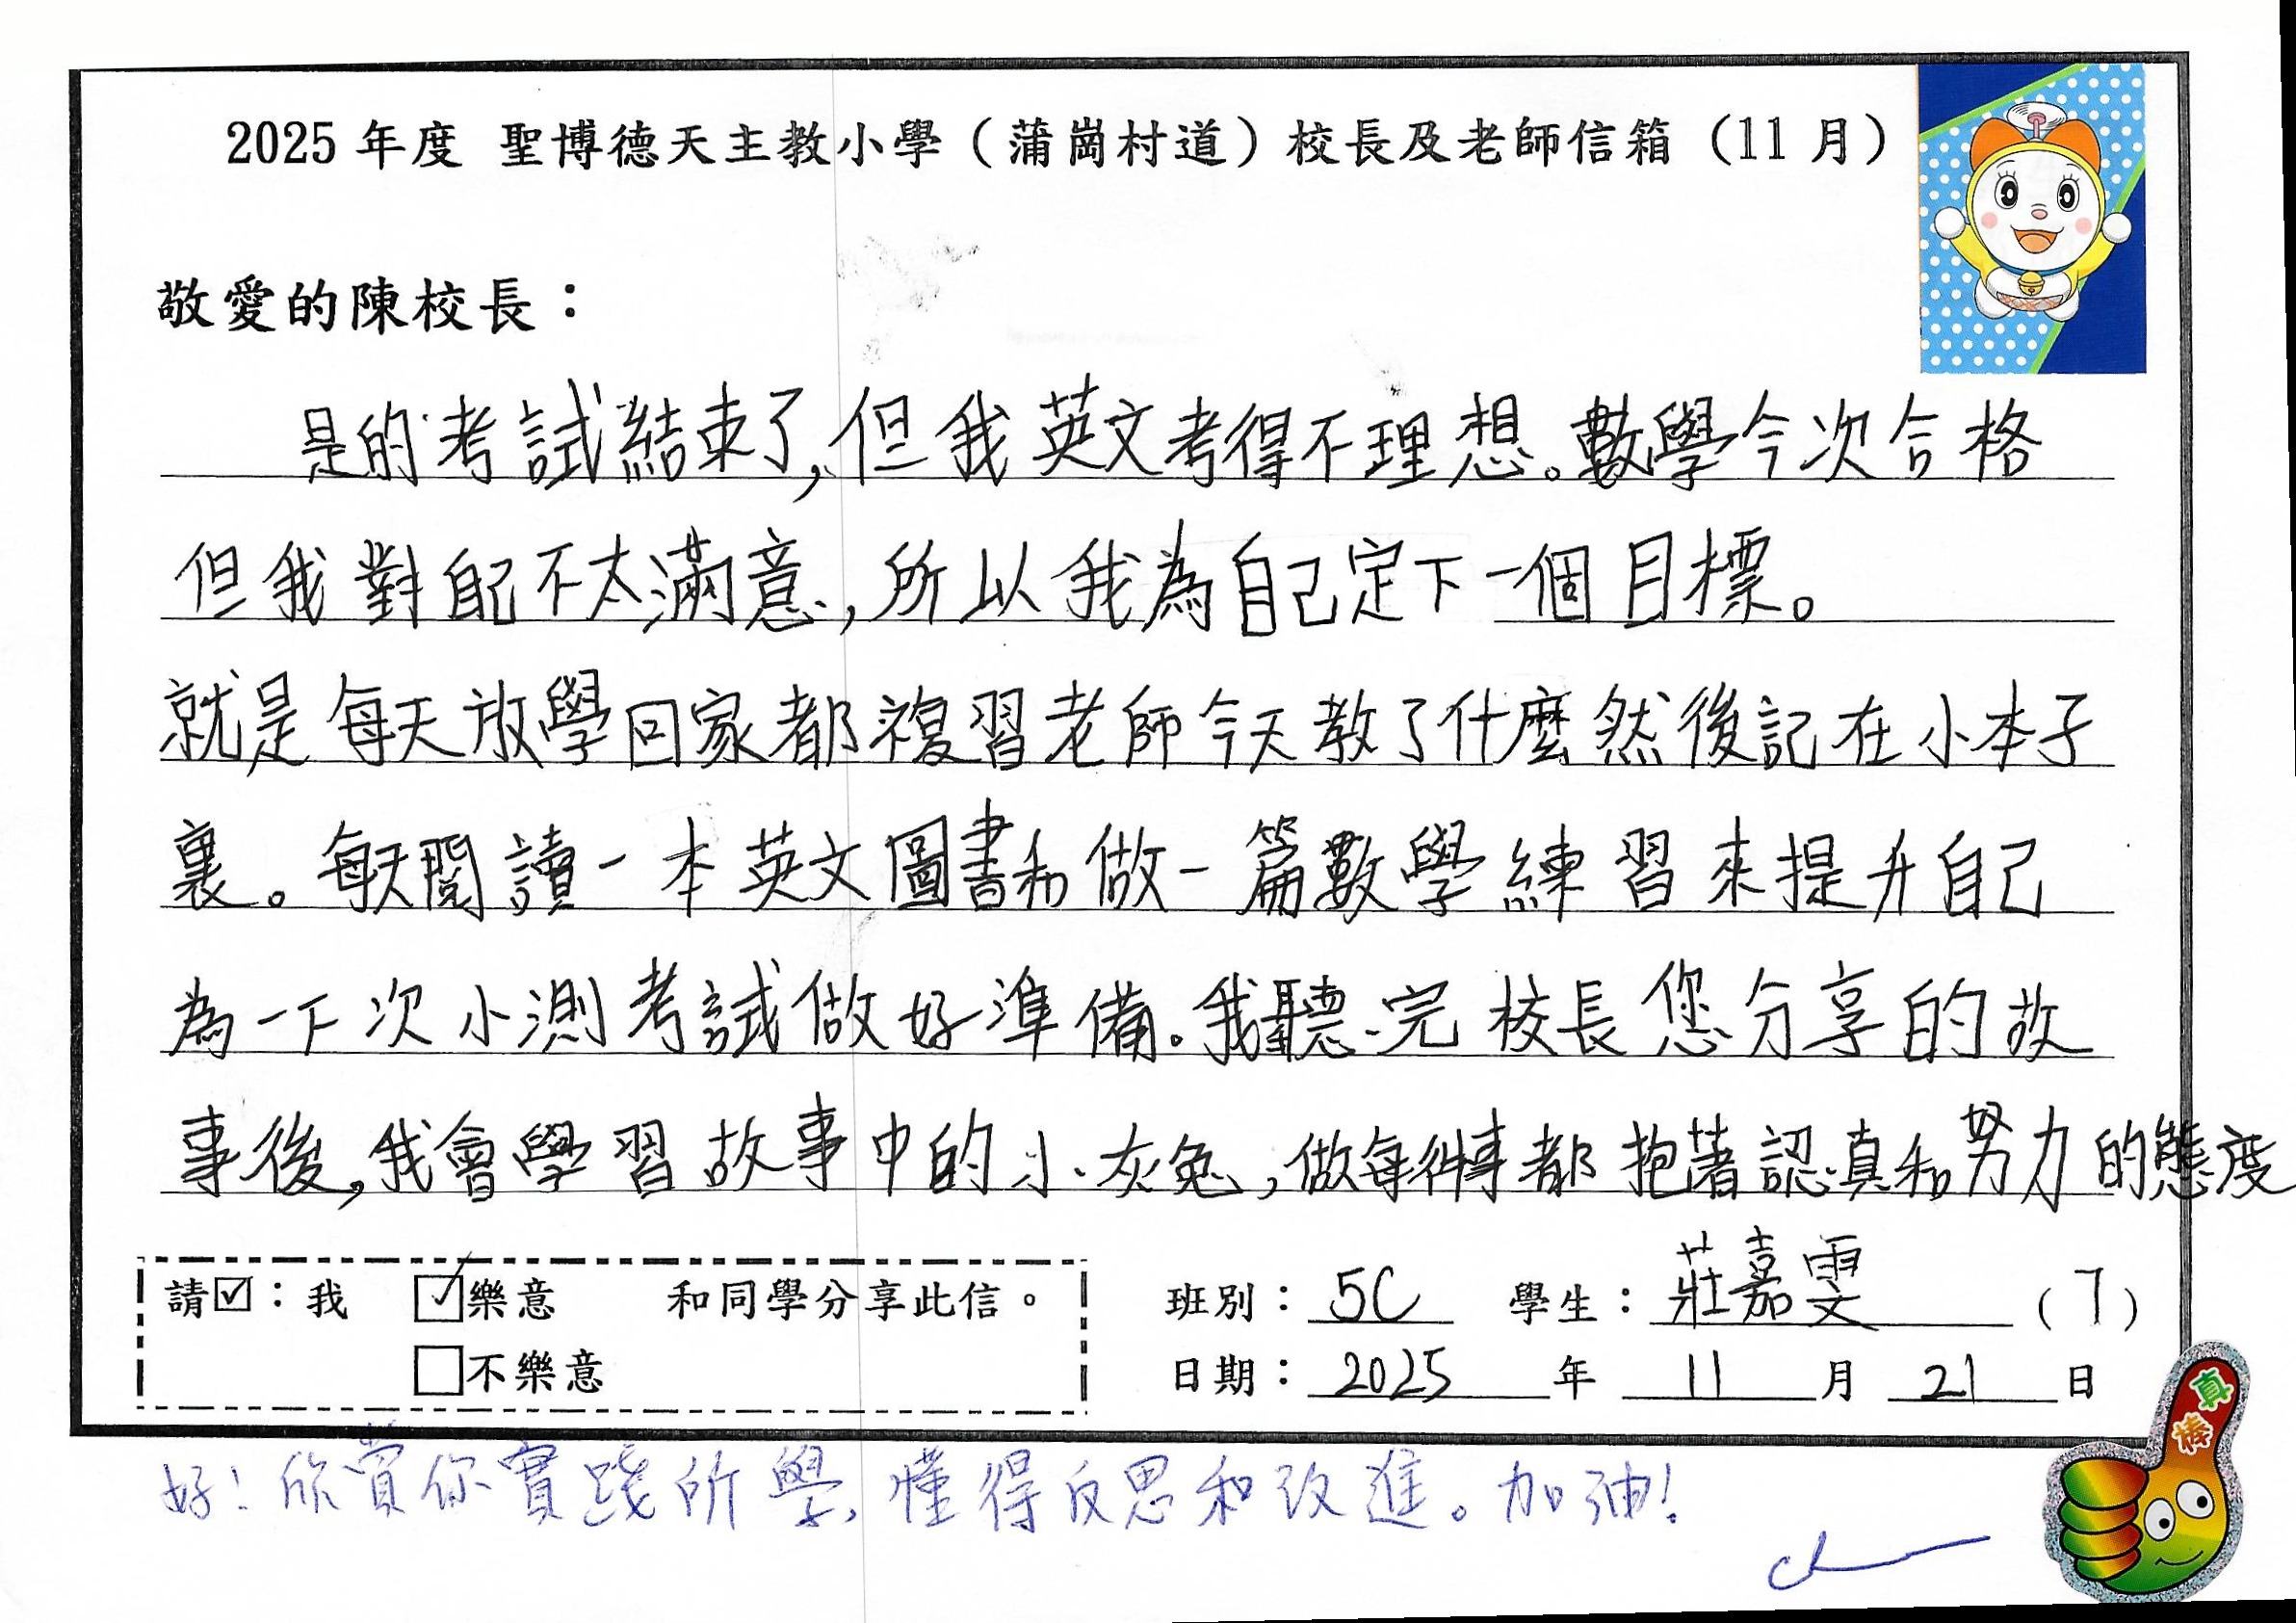 2025 年度 聖博德天主教小學（蒲崗村道）校長及老師信箱（11 月）
敬愛的陳校長：
是的考試結束了,但我英文考得不理想。數學今次合格
但我對自己不太滿意,所以我為自己定下一個目標。
就是每天放學回家都複習老師今天教了什麼然後記在小本子
裏。每天閱讀一本英文圖書和做一篇數學練習來提升自己
為一下次小測考試做好準備。我聽完校長您分享的故
事後,我會學習故事中的小灰兔,做每件事都抱著認真和努力的態度
請☑：我 ☑樂意 和同學分享此信。
□不樂意
班別：5C 學生：莊嘉雯 (7)
日期：2025 年 11 月 21 日
真棒
好！欣賞你實踐所學，懂得反思和改進。加油！